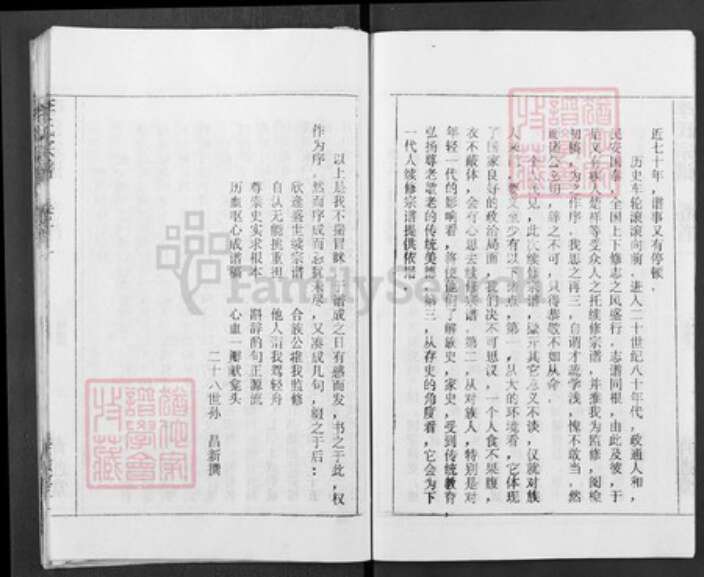 近七十年，谱事又有停顿。
历史车轮滚滚向前，进入二十世纪八十年代，政通人和，
民安国泰，全国上下修志之风盛行。志谱同根，由此及彼，于
是又有族人楚祥等受众人之托续修宗谱，并推我为监修，阅检
初稿，为之作序。我思之再三，自谓才疏学浅，愧不敢当，然
辞之不可，只得恭敬不如从命。
个人浅见，此次续修宗谱，撇开其它意义不谈，仅就对族
人来说，意义至少有以下诸点，第一，从大的环境看，它体现
了国家良好的政治局面，我们决不可思议，一个人食不果腹，
衣不蔽体，会有心思去续修宗谱。第二，从对族人，特别是对
年轻一代的影响看，将使他们了解族史，家史，受到传统教育
弘扬尊老敬老的传统美德。第三，从存史的角度看，它会为下
一代人续修宗谱提供依据
以上是我不揣冒昧，于谱成之日有感而发，书之于此，权
作为序。然而序成而心犹未尽，又凑成几句，缀之于后：
欣逢盛世续宗谱 合族公推我监修
自认无能挑重担 他人谓我驾轻舟
尊崇史实求根本 斟辞酌句正源流
历血呕心成谱稿 心血一瓣献龛头
二十八世孙 昌新撰
FamilySearch